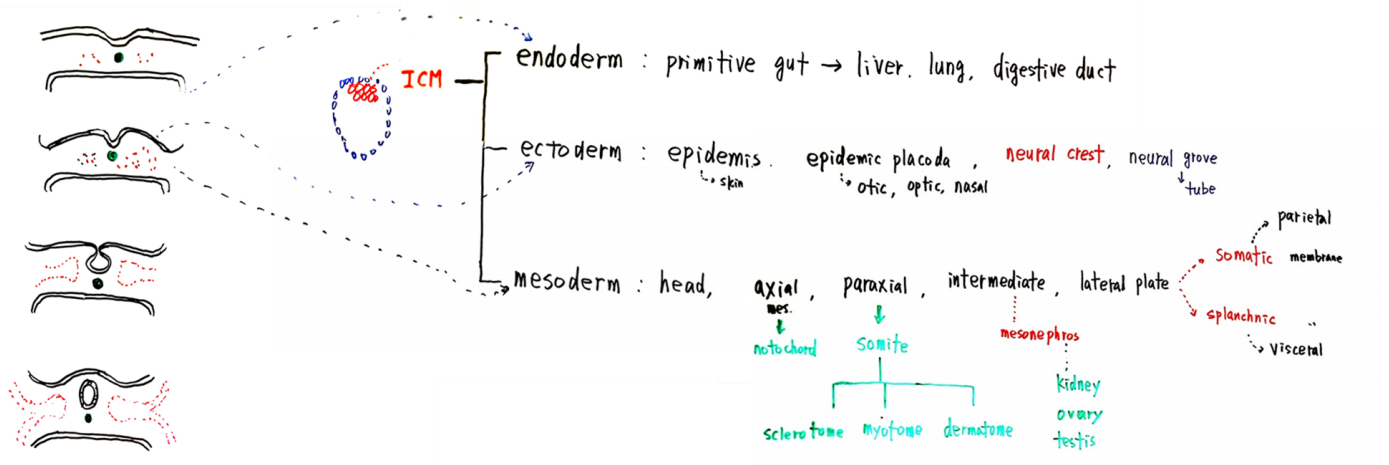 ICM
endoderm : primitive gut → liver. lung, digestive duct
ectoderm : epidemis. epidemic placoda, neural crest, neural grove
skin
otic, optic, nasal
tube
mesoderm : head, axial, paraxial, intermediate, lateral plate
mes.
notochord
somite
sclerotome myotome dermatome
mesonephros
kidney
ovary
testis
somatic
parietal
membrane
splanchnic "
visceral